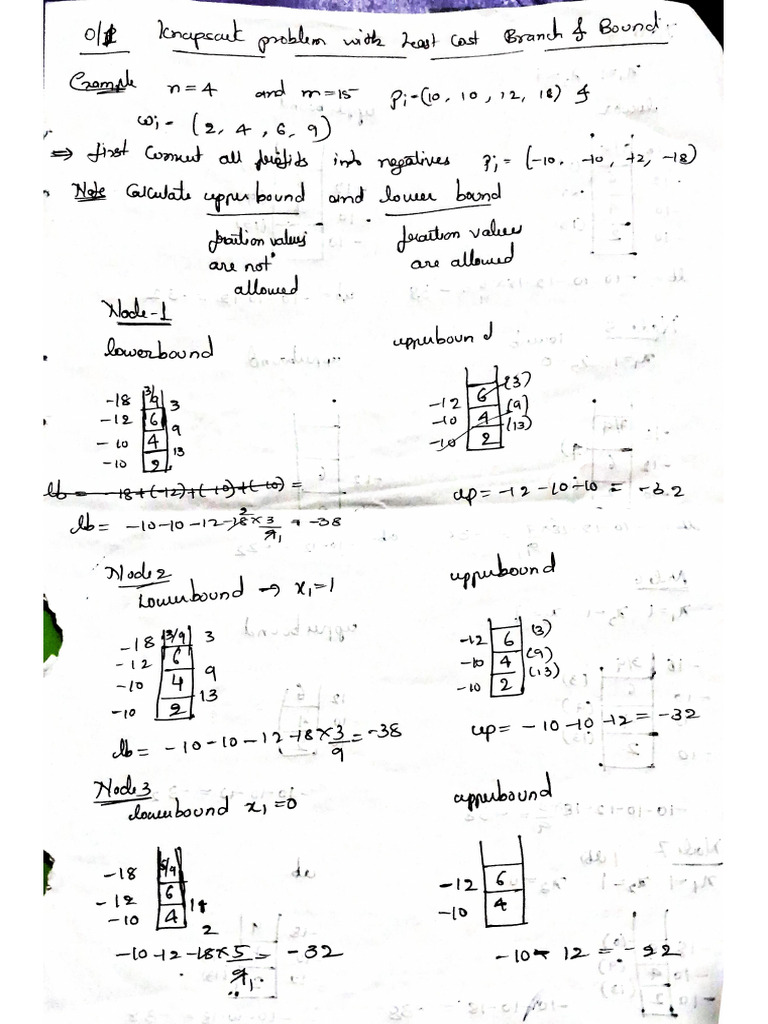 0/1 Knapsack problem with Least Cost Branch & Bound
Example n=4 and m=15 Pi=(10, 10, 12, 18) &
wi = (2, 4, 6, 9)
⇒ first Convert all profits into negatives Pi = (-10, -10, -12, -18)
Note Calculate upper bound and lower bound
fraction values are not allowed
fraction values are allowed
Node-1
lowerbound
upperbound
-18 3/9 3
-12 6 9
-10 4 13
-10 2
-12 6 (3)
-10 4 (9)
-10 2 (13)
lb = -18+(-12)+(-10)+(-10) =
lb = -10-10-12-18×3/9 = -38
up = -12-10-10 = -32
Node 2
Lowerbound → x1=1
upperbound
-18 3/9 3
-12 6
-10 4 9
-10 2 13
-12 6 (3)
-10 4 (9)
-10 2 (13)
lb = -10-10-12-18×3/9 = -38
up = -10-10-12 = -32
Node 3
lowerbound x1=0
upperbound
-18 5/9
-12 6
-10 4 11
-12 6
-10 4
-10-12-18×5/9 = -32
-10-12 = -22